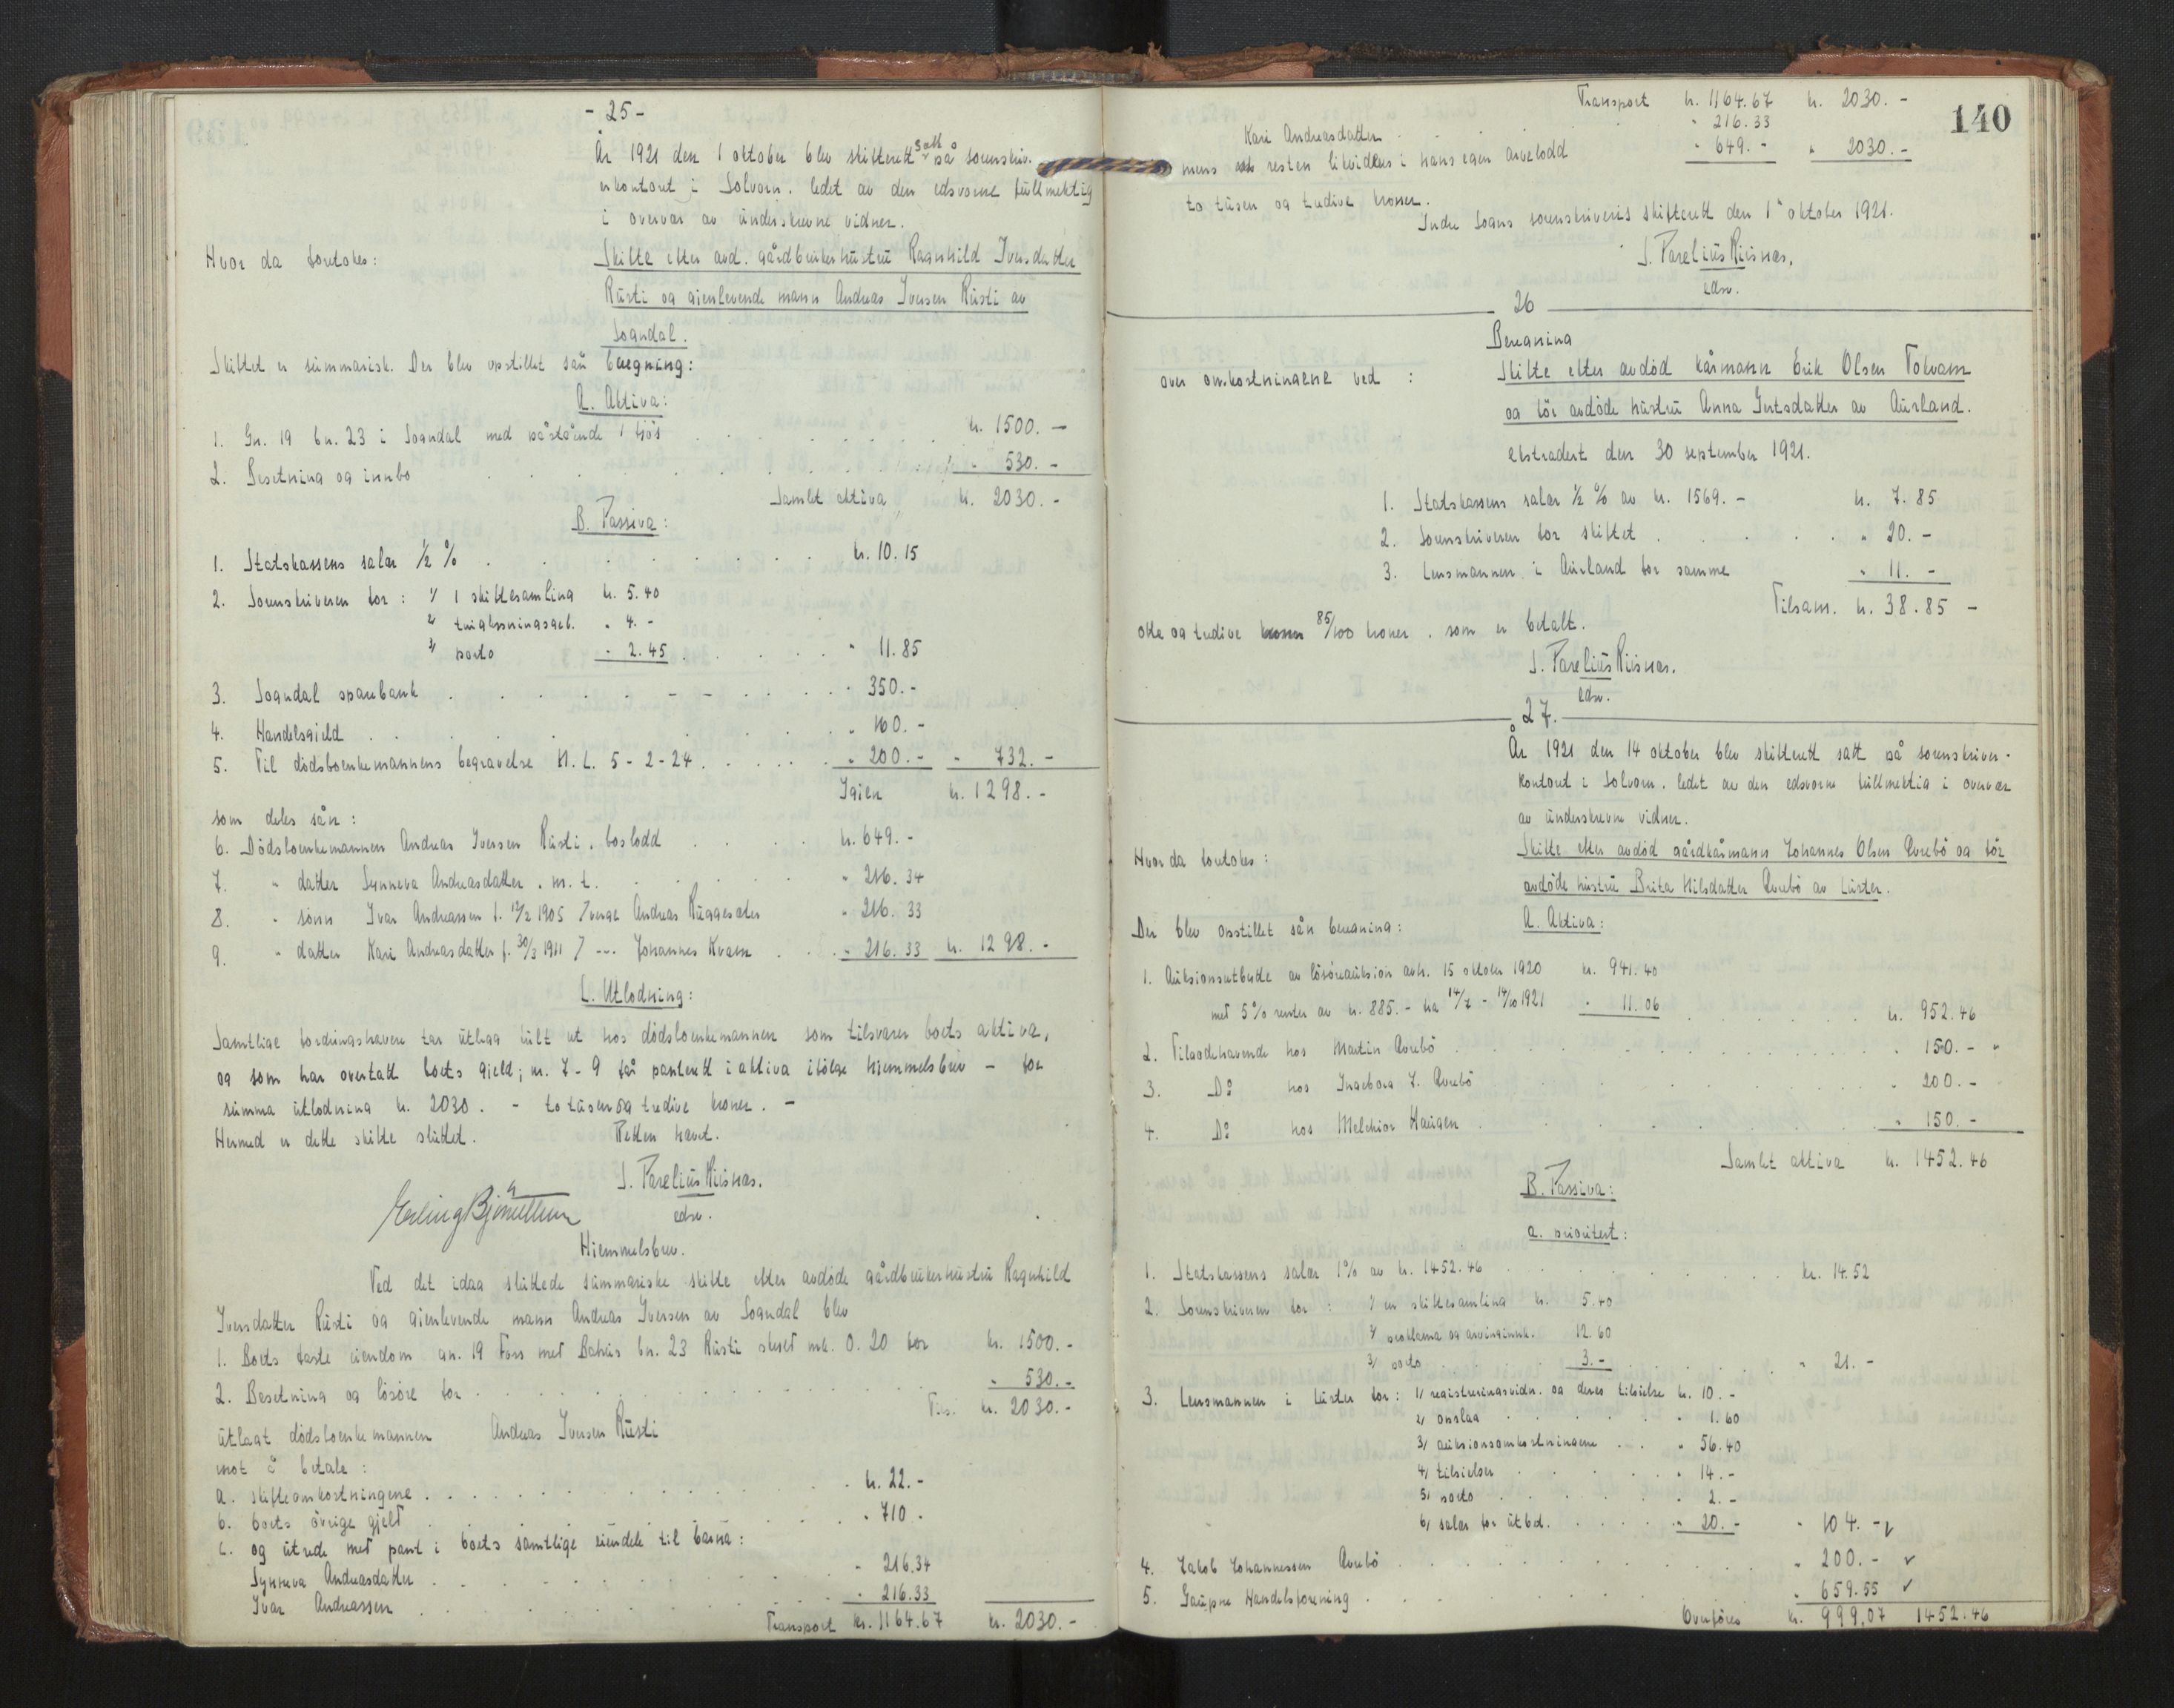 - 25 -
År 1921 den 1 oktober blev skifterett satt på sorenskriv-
erkontoret i Solvorn, ledet av den edsvorne fullmektig
i overvær av underskrevne vidner.
Hvor da foretokes:
Skifte efter avd. gårdbrukerhustru Ragnhild Iversdatter
Rusti og gjenlevende mann Andreas Iversen Rusti av
Sogndal.
Skiftet er summarisk. Der blev opstillet sån beregning:
A. Aktiva:
1. Gn. 19 bn. 23 i Sogndal med påstående fjøs kr. 1500. -
2. Besetning og innbo " 530. -
Samlet aktiva kr. 2030. -
B. Passiva:
1. Statskassens salær ½ % kr. 10.15
2. Sorenskriveren for: 1/ 1 skiftesamling kr. 5.40
2/ tinglesningsgeb. " 4. -
3/ porto " 2.45 " 11.85
3. Sogndal sparebank " 350. -
4. Handelsgjeld " 160. -
5. Til dødsboenkemannens begravelse N. L. 5-2-24 " 200. - " 732. -
Igjen kr. 1298. -
som deles sån:
6. Dødsboenkemannen Andreas Iversen Rusti, boslodd kr. 649. -
7. " datter Synneva Andreasdatter, m. t. " 216.34
8. " sønn Ivar Andreassen f. 12/2 1905 / verge Andreas Ruggesæter " 216.33
9. " datter Kari Andreasdatter f. 30/3 1911 / --- Johannes Kvam " 216.33 kr. 1298. -
C. Utlodning:
Samtlige fordringshavere får utlagg fullt ut hos dødsboenkemannen som tilsvarer boets aktiva,
og som har overtatt boets gjeld; nr. 7-9 får panterett i aktiva ifølge hjemmelsbrev - for
summa utlodning kr. 2030. - to tusen og tredive kroner. -
Hermed er dette skifte sluttet. Retten hevet.
J. Parelius Riisnæs.
edsv.
Erling Bjørnethun
Hjemmelsbrev.
Ved det idag sluttede summariske skifte efter avdøde gårdbrukerhustru Ragnhild
Iversdatter Rusti og gjenlevende mann Andreas Iversen av Sogndal blev
1. Boets faste eiendom gn. 19 Foss met Bakhus bn. 23 Rusti skyld mk. 0.20 for kr. 1500. -
2. Besetning og løsøre for " 530. -
Tils. kr. 2030. -
utlagt dødsboenkemannen Andreas Iversen Rusti
mot å betale:
a. skifteomkostningene kr. 22. -
b. boets øvrige gjeld " 710 -
c. og utrede met pant i boets samtlige eiendele til barna:
Synneva Andreasdatter " 216.34
Ivar Andreassen " 216.33
Transport kr. 1164.67 kr. 2030. -
140
Transport kr. 1164.67 kr. 2030. -
Kari Andreasdatter " 216.33
mens resten likvideres i hans egen arvelodd " 649. - " 2030. -
to tusen og tredive kroner.
Indre Sogns sorenskriveris skifterett den 1. oktober 1921.
J. Parelius Riisnæs.
edsv.
26
Beregning
over omkostningene ved:
Skifte efter avdød kårmann Erik Olsen Tokvam
og før avdøde hustru Anna Gertsdatter av Aurland.
ekstradert den 30 september 1921.
1. Statskassens salær ½ % av kr. 1569. - kr. 7.85
2. Sorenskriveren for skiftet " 20. -
3. Lensmannen i Aurland for samme " 11. -
Tilsam. kr. 38.85 -
otte og tredive 85/100 kroner, som er betalt.
J. Parelius Riisnæs.
edsv.
27.
År 1921 den 14 oktober blev skifterett satt på sorenskriver-
kontoret i Solvorn, ledet av den edsvorne fullmektig i overvær
av underskrevne vidner.
Hvor da foretokes:
Skifte efter avdød gårdkårmann Johannes Olsen Kvebø og før
avdøde hustru Brita Nilsdatter Kvebø av Luster.
Der blev opstillet sån beregning: A. Aktiva:
1. Auksionsutbytte av løsøreauksion avh. 15 oktober 1920 kr. 941.40
met 5% renter av kr. 885. - fra 14/7 - 14/10 1921 " 11.06 kr. 952.46
2. Tilgodehavende hos Martin Kvebø " 150. - "
3. Do hos Ingeborg J. Kvebø " 200. -
4. Do hos Melchior Haugen " 150. -
Samlet aktiva kr. 1452.46
B. Passiva:
a. prioritert:
1. Statskassens salær 1% av kr. 1452.46 kr. 14.52
2. Sorenskriveren for: 1/ en skiftesamling kr. 5.40
2/ proklama og arvinginnk. 12.60
3/ porto 3. - " 21. -
3. Lensmannen i Luster for: 1/ registreringsvidn. og deres tilsielse kr. 10. -
2/ opslag " 1.60
3/ auksionsomkostningene " 56.40
4/ tilsielser " 14. -
5/ porto " 2. -
6/ salær for utbet. " 20. - " 104. - √
4. Jakob Johannessen Kvebø " 200. - √
5. Gaupne Handelsforening " 659.55 √
Overføres kr. 999,07 1452.46